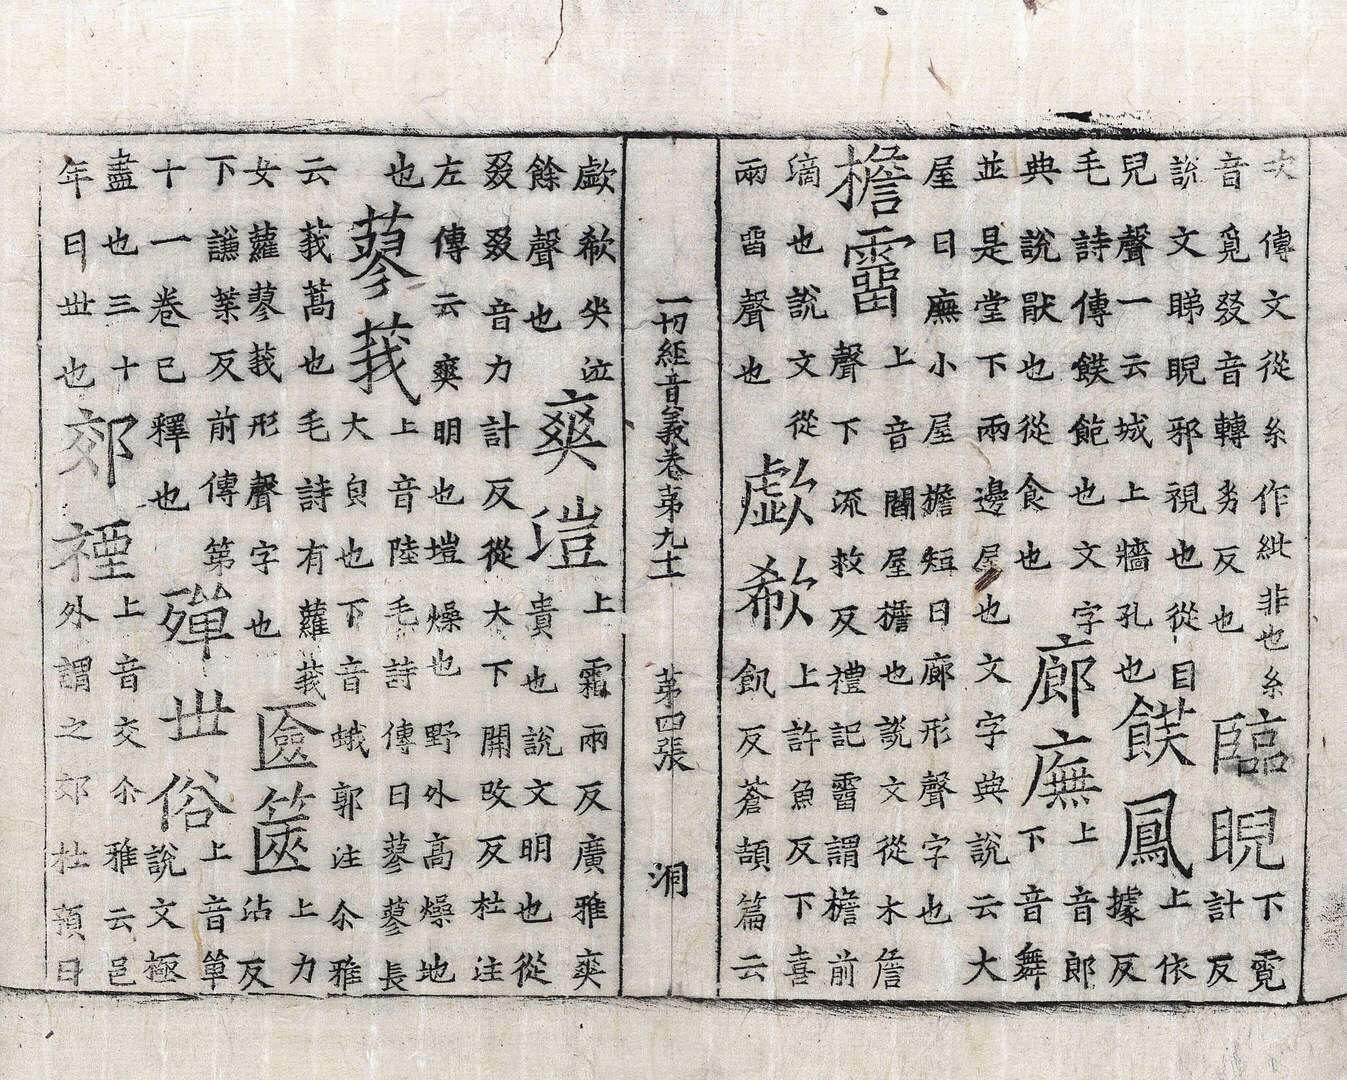 次傳文從糸作紕非也糸
音覓叕音轉劣反也
臨睨
下霓
計反
説文睇睨邪視也從目
兒聲一云城上牆孔也
饃鳳
上依
據反
毛詩傳饃飽也文字
典說猒也從食也
廊廡
上音郎
下音舞
並是堂下兩邊屋也文字典說云大
屋曰廡小屋檐短曰廊形聲字也
檐霤
上音閻屋檐也説文從木詹
聲下流救反禮記霤謂檐前
滴也說文從
雨畱聲也
歔欷
上許魚反下喜
飢反蒼頡篇云
一切經音義卷苐九十二 苐四張 洞
歔欷㘴泣
餘聲也
爽塏
上霜兩反廣雅爽
貴也說文明也從
叕叕音力計反從大下開改反杜注
左傳云爽明也塏燥也野外高燥地
也
蓼莪
上音陸毛詩傳曰蓼蓼長
大皃也下音蛾郭注尒雅
云莪蒿也毛詩有蘿莪
女蘿蓼莪形聲字也
匳篋
上力
沾反
下謙葉反前傳第
十一卷已釋也
殫丗俗
上音單
説文極
盡也三十
年曰丗也
郊禋
上音交尒雅云邑
外謂之郊杜預曰